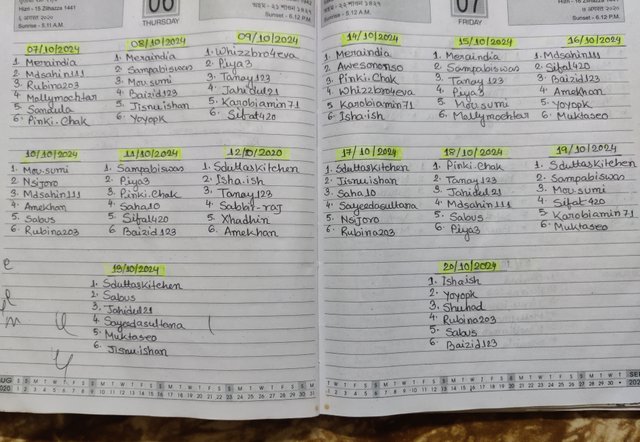 Hizri - 15 Zilhazza 1441
Sunrise - 5.11 A.M.
06
THURSDAY
Sunset - 6.12 P.M.
07/10/2024
1. Meraindia
2. Mdsahin111
3. Rubina203
4. Mollymochtar
5. Sanaula
6. Pinki.Chak
08/10/2024
1. Meraindia
2. Sampabiswas
3. Mou.sumi
4. Baizid123
5. Jisnuishan
6. Yoyopk
09/10/2024
1. Whizzbro4eva
2. Piya3
3. Tanay123
4. Jahidul21
5. Karobiamin71
6. Sifat420
10/10/2024
1. Mou.sumi
2. Nsijoro
3. Mdsahin111
4. Amekhan
5. Sabus
6. Rubina203
11/10/2024
1. Sampabiswas
2. Piya3
3. Pinki.Chak
4. Saha10
5. Sifat420
6. Baizid123
12/10/2020
1. Sduttaskitchen
2. Isha.ish
3. Tanay123
4. Sabbir-raj
5. Xhadhin
6. Amekhan
13/10/2024
1. Sduttaskitchen
2. Sabus
3. Jahidul21
4. Sayedasultana
5. Muktaseo
6. Jisnuishan
07
FRIDAY
Sunset - 6.12 P.M.
14/10/2024
1. Meraindia
2. Awesomonso
3. Pinki.Chak
4. Whizzbro4eva
5. Karobiamin71
6. Ishaish
15/10/2024
1. Meraindia
2. Sampabiswas
3. Tanay123
4. Piya3
5. Mou.sumi
6. Mollymochtar
16/10/2024
1. Mdsahin111
2. Sifat420
3. Baizid123
4. Amekhan
5. Yoyopk
6. Muktaseo
17/10/2024
1. Sduttaskitchen
2. Jisnuishan
3. Saha10
4. Sayeedasultana
5. Nsijoro
6. Rubina203
18/10/2024
1. Pinki.Chak
2. Tanay123
3. Jahidul21
4. Mdsahin111
5. Sabus
6. Piya3
19/10/2024
1. Sduttaskitchen
2. Sampabiswas
3. Mou.sumi
4. Sifat420
5. Karobiamin71
6. Muktaseo
20/10/2024
1. Ishaish
2. Yoyopk
3. Shuhad
4. Rubina203
5. Sabus
6. Baizid123